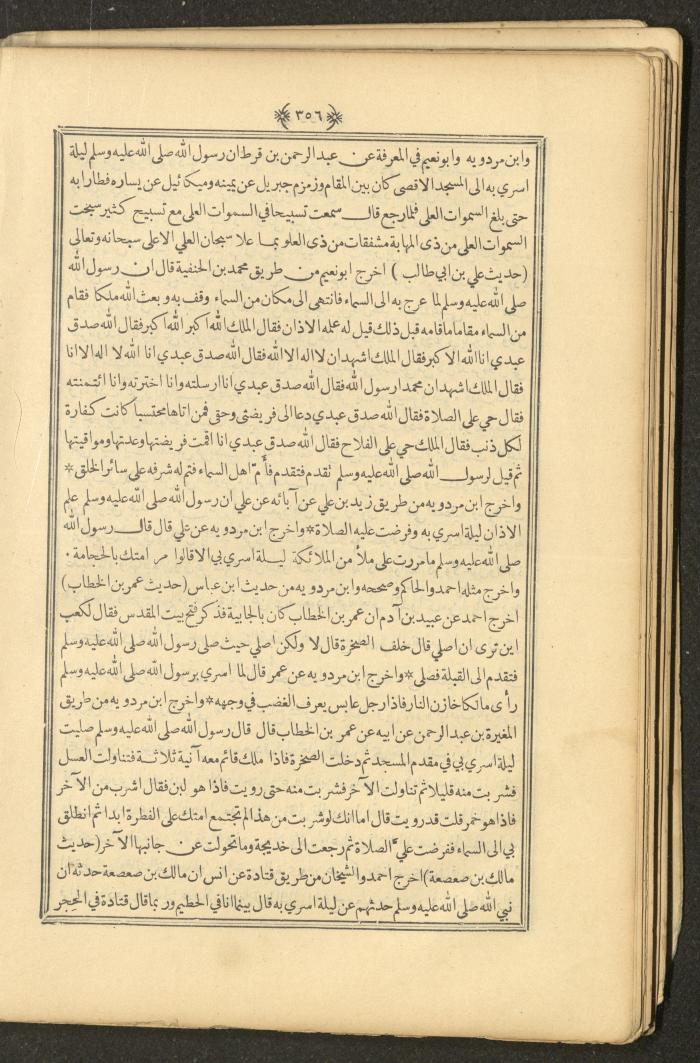 ٣٥٦
وابن مردويه وابونعيم في المعرفة عن عبد الرحمن بن قرط ان رسول الله صلى الله عليه وسلم ليلة
اسري به الى المسجد الاقصى كان بين المقام وزمزم جبريل عن يمينه وميكائيل عن يساره فطارا به
حتى بلغ السموات العلى فلما رجع قال سمعت تسبيحا في السموات العلى مع تسبيح كثير سبحت
السموات العلى من ذى المهابة مشفقات من ذى العلو بما علا سبحان العلي الاعلى سبحانه وتعالى
(حديث علي بن ابي طالب) اخرج ابونعيم من طريق محمد بن الحنفية قال ان رسول الله
صلى الله عليه وسلم لما عرج به الى السماء فانتهى الى مكان من السماء وقف به وبعث الله ملكا فقام
من السماء مقاما ما قامه قبل ذلك قيل له علمه الاذان فقال الملك الله اكبر الله اكبر فقال الله صدق
عبدي انا الله الاكبر فقال الملك اشهد ان لا اله الا الله فقال الله صدق عبدي انا الله لا اله الا انا
فقال الملك اشهد ان محمدا رسول الله فقال الله صدق عبدي انا ارسلته وانا اخترته وانا ائتمنته
فقال حي على الصلاة فقال الله صدق عبدي دعا الى فريضتي وحقى فمن اتاها محتسبا كانت كفارة
لكل ذنب فقال الملك حي على الفلاح فقال الله صدق عبدي انا اقمت فريضتها وعدتها ومواقيتها
ثم قيل لرسول الله صلى الله عليه وسلم تقدم فتقدم فأمّ اهل السماء فتم له شرفه على سائر الخلق *
واخرج ابن مردويه من طريق زيد بن علي عن آبائه عن علي ان رسول الله صلى الله عليه وسلم علم
الاذان ليلة اسري به وفرضت عليه الصلاة * واخرج ابن مردويه عن علي قال قال رسول الله
صلى الله عليه وسلم ما مررت على ملأ من الملائكة ليلة اسري بي الا قالوا مر امتك بالحجامة .
واخرج مثله احمد والحاكم وصححه وابن مردويه من حديث ابن عباس (حديث عمر بن الخطاب)
اخرج احمد عن عبيد بن آدم ان عمر بن الخطاب كان بالجابية فذكر فتح بيت المقدس فقال لكعب
اين ترى ان اصلي قال خلف الصخرة قال لا ولكن اصلي حيث صلى رسول الله صلى الله عليه وسلم
فتقدم الى القبلة فصلى * واخرج ابن مردويه عن عمر قال لما اسري برسول الله صلى الله عليه وسلم
رأى مالكا خازن النار فاذا رجل عابس يعرف الغضب في وجهه * واخرج ابن مردويه من طريق
المغيرة بن عبد الرحمن عن ابيه عن عمر بن الخطاب قال قال رسول الله صلى الله عليه وسلم صليت
ليلة اسري بي في مقدم المسجد ثم دخلت الصخرة فاذا ملك قائم معه آنية ثلاثة فتناولت العسل
فشربت منه قليلا ثم تناولت الآخر فشربت منه حتى رويت فاذا هو لبن فقال اشرب من الآخر
فاذا هو خمر قلت قد رويت قال اما انك لو شربت من هذا لم تجتمع امتك على الفطرة ابدا ثم انطلق
بي الى السماء ففرضت عليّ الصلاة ثم رجعت الى خديجة وما تحولت عن جانبها الآخر (حديث
مالك بن صعصعة) اخرج احمد والشيخان من طريق قتادة عن انس ان مالك بن صعصعة حدثه ان
نبي الله صلى الله عليه وسلم حدثهم عن ليلة اسري به قال بينما انا في الحطيم وربما قال قتادة في الحجر